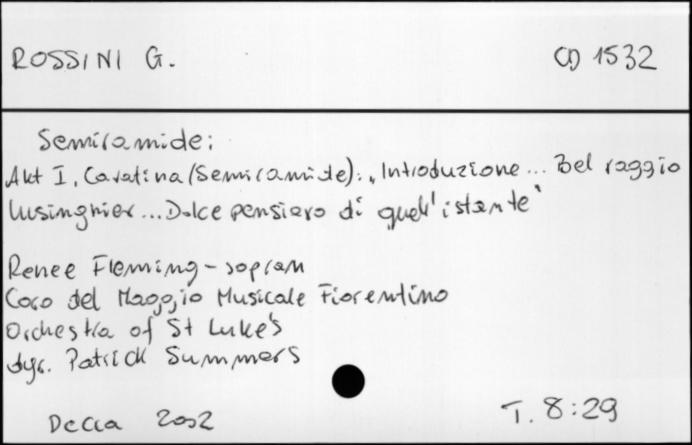 ROSSINI G.
CD 1532
Semiramide:
Akt I, Cavatina (Semiramide): „Introduzione... Bel raggio
lusinghier... Dolce pensiero di quell'istante"
Renee Fleming - sopran
Coro del Maggio Musicale Fiorentino
Orchestra of St Luke's
dyr. Patrick Summers
Decca 2002
T. 8:29